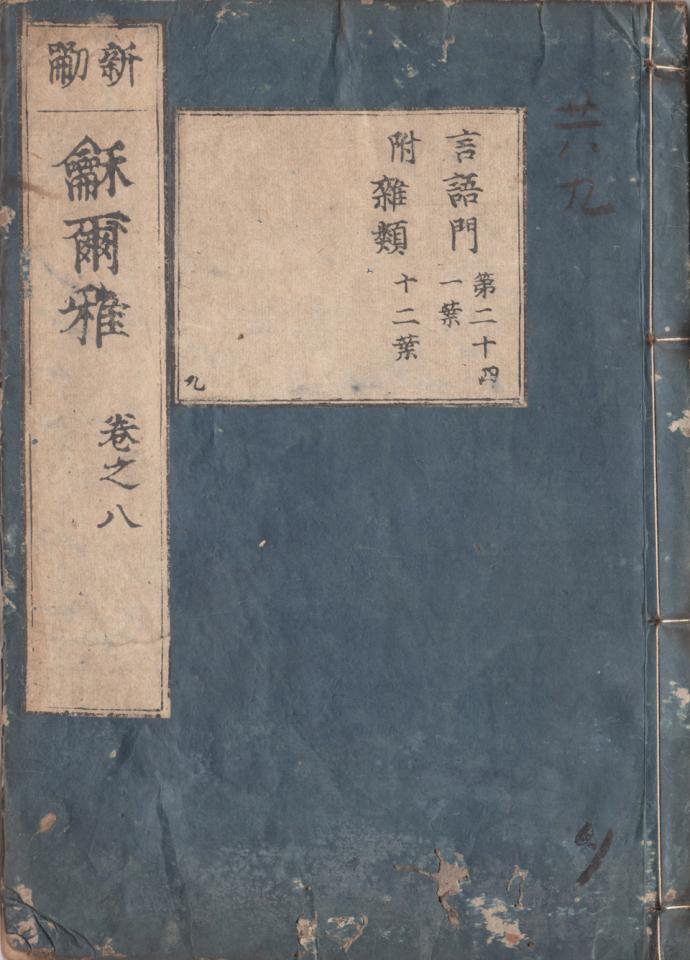 九
言語門 第二十四
一葉
附雜類 十二葉
九
新
龢爾雅
卷之八